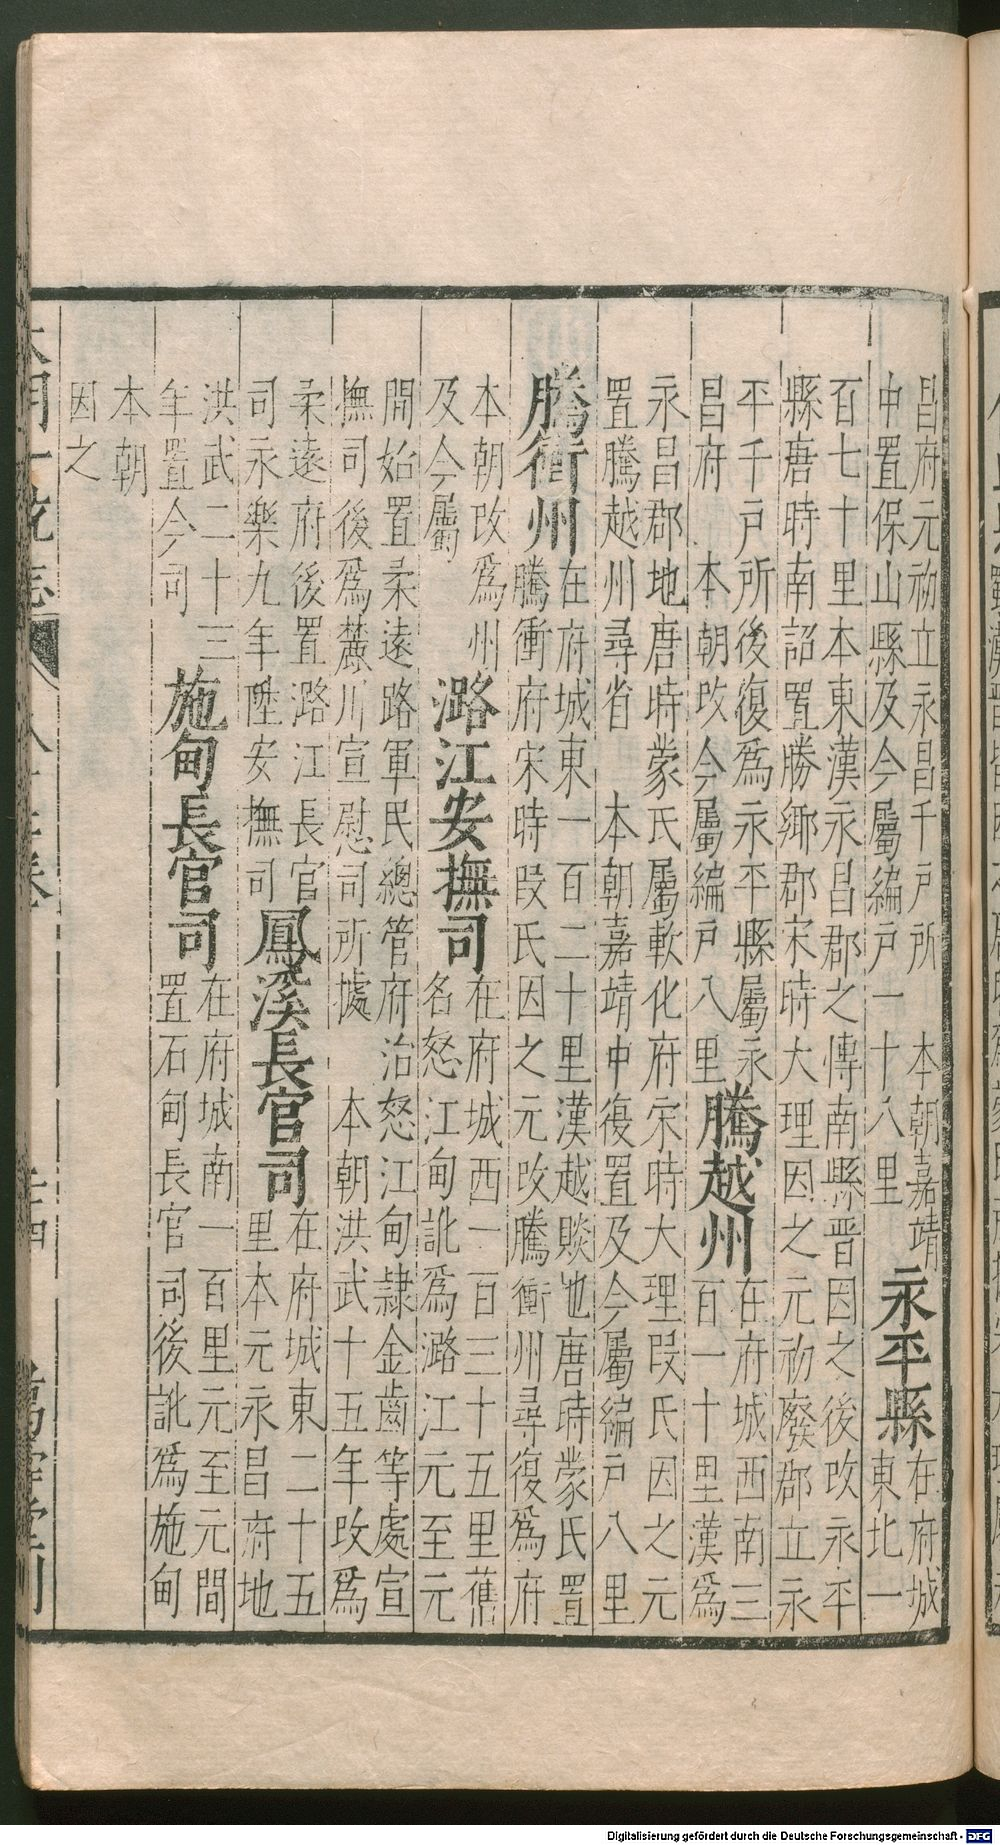 昌府元初立永昌千戶所　本朝嘉靖
中置保山縣及今屬編戶一十八里
永平縣
在府城
東北一
百七十里本東漢永昌郡之傳南縣晉因之後改永平
縣唐時南詔置勝鄉郡宋時大理因之元初廢郡立永
平千戶所後復爲永平縣屬永
昌府　本朝改今屬編戶八里
騰越州
在府城西南三
百一十里漢爲
永昌郡地唐時蒙氏屬軟化府宋時大理段氏因之元
置騰越州尋省　本朝嘉靖中復置及今屬編戶八里
騰衝州
在府城東一百二十里漢越賧也唐時蒙氏置
騰衝府宋時段氏因之元改騰衝州尋復爲府
本朝改爲州
及今屬
潞江安撫司
在府城西一百三十五里舊
名怒江甸訛爲潞江元至元
間始置柔遠路軍民總管府治怒江甸隸金齒等處宣
撫司後爲麓川宣慰司所據　本朝洪武十五年改爲
柔遠府後置潞江長官
司永樂九年陞安撫司
鳳溪長官司
在府城東二十五
里本元永昌府地
洪武二十三
年置今司
施甸長官司
在府城南一百里元至元間
置石甸長官司後訛爲施甸
本朝
因之
Digitalisierung gefördert durch die Deutsche Forschungsgemeinschaft - DFG